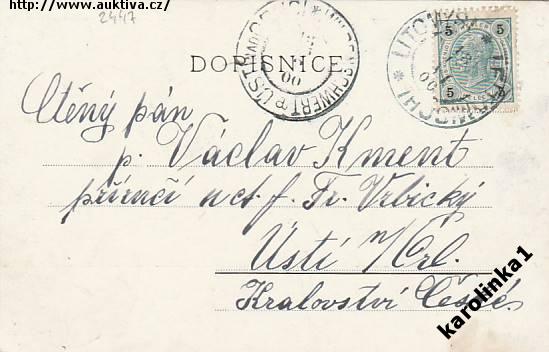 http://www.auktiva.cz/
2447
DOPISNICE
WILDENSCHWERT
ÚSTÍ
00
LITOMYŠL
LEITOMISCHL
00
5 5
5 5
Ctěný pán
p. Václav Kment
příručí u ct. f. Fr. Vrbický
Ústí n/Orl.
Kralovství České.
karolinka1